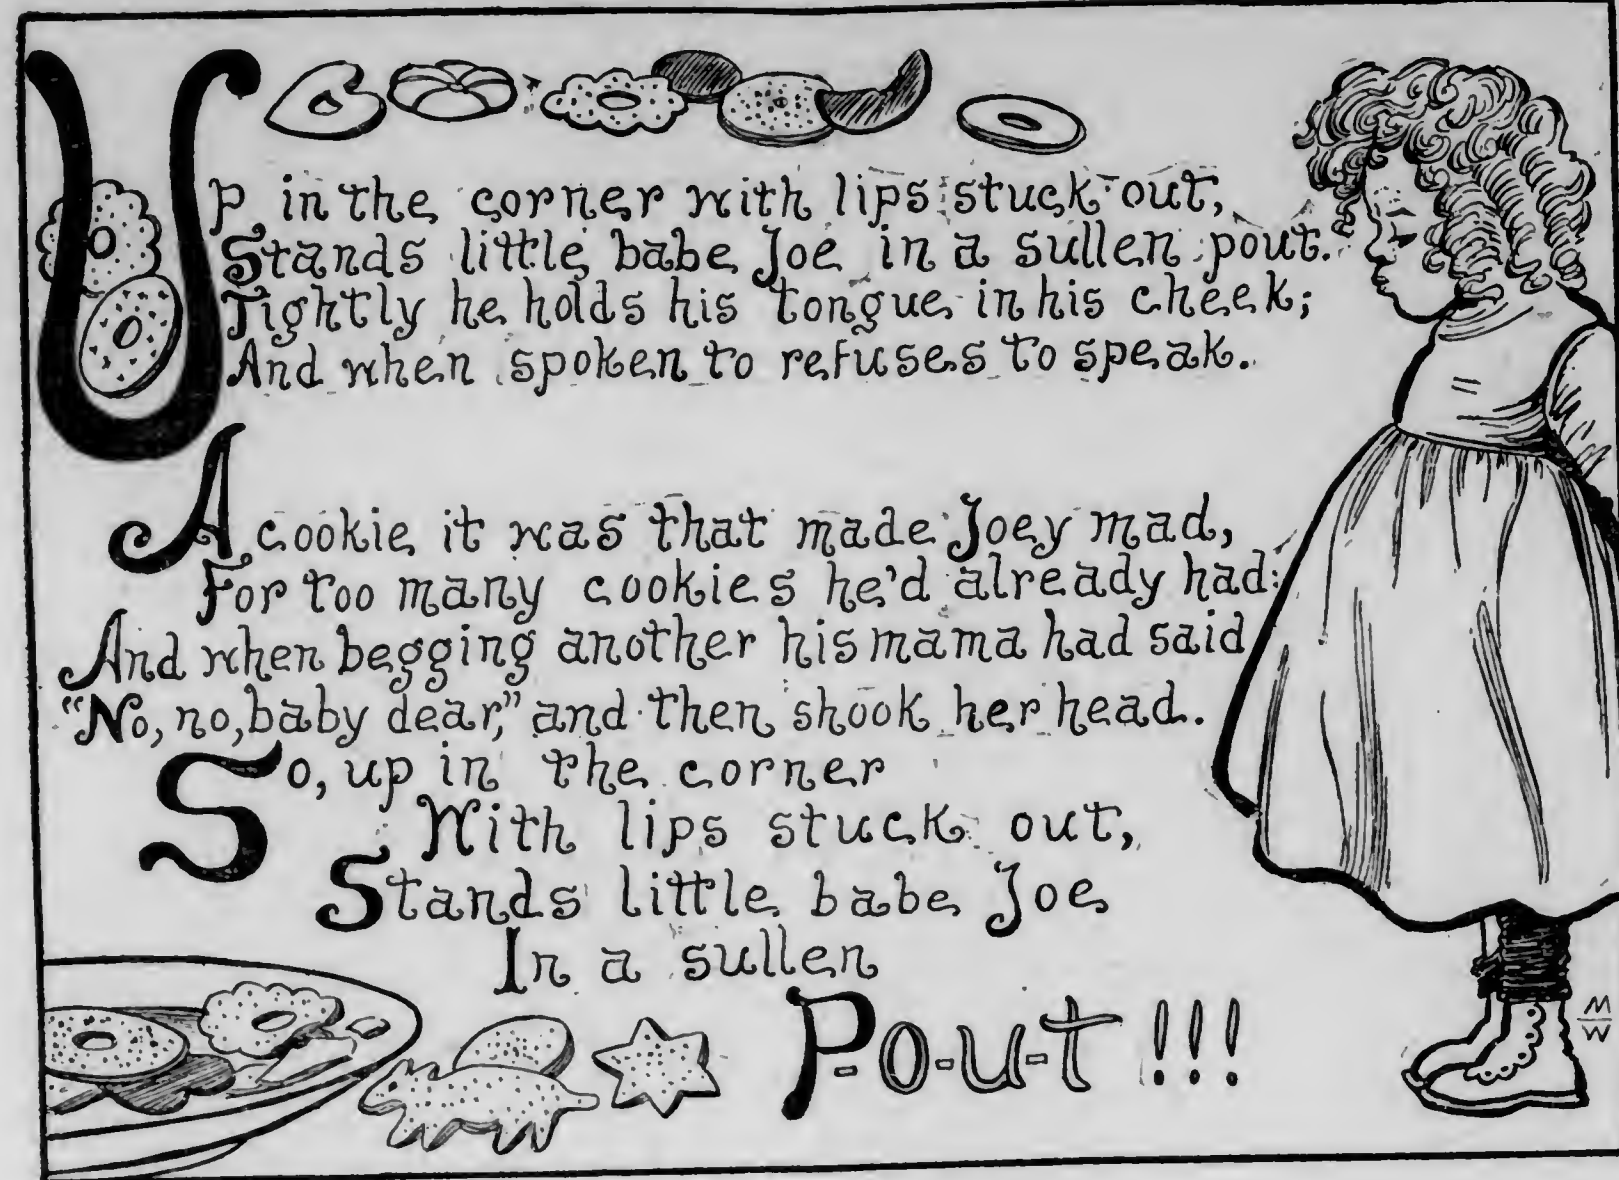 Up in the corner with lips stuck out,
Stands little babe Joe in a sullen pout.
Tightly he holds his tongue in his cheek;
And when spoken to refuses to speak.
A cookie it was that made Joey mad,
For too many cookies he'd already had:
And when begging another his mama had said
"No, no, baby dear," and then shook her head.
So, up in the corner
With lips stuck out,
Stands little babe Joe
In a sullen
P-o-u-t!!!
M
W